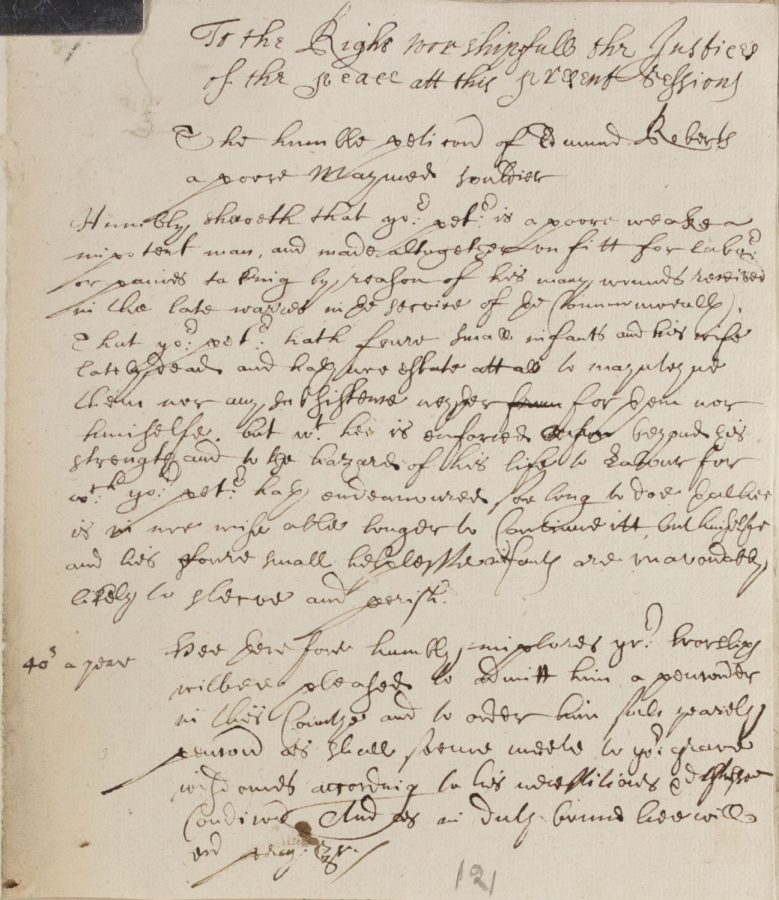 To the Right worshipfull the Justices
of the peace att this present Sessions
The humble peticon of Edmund Roberts
a poore Maymed souldier
Humbly sheweth that yor: petr: is a poore weake
impotent man, and made altogether unfitt for labor:
or paines taking by reason of his many wounds received
in the late warres in ye service of ye Commonwealth.
That yor: petr: hath foure small infants and his wife
lately dead and hath noe estate att all to maynteyne
them nor any subsistence neyther for them nor
himselfe, but wt. hee is enforced beyond his
strength and to the hazard of his life to Labour for
wch. yor: petr: hath endeavoured soe long to doe that hee
is in noe wise able longer to Continue itt but himselfe
and his foure small helplesse infants are unavoydably
likely to sterve and perish.
40s a yeare
Hee therefore humbly implores yor: worships
wilbee pleased to admitt him a pensioner
in this Countye and to order him such yearely
pension as shall seeme meete to yor: grave
wisdomes according to his necessitious &
Condicon And as in duty bound hee will
ever pray &c.
121